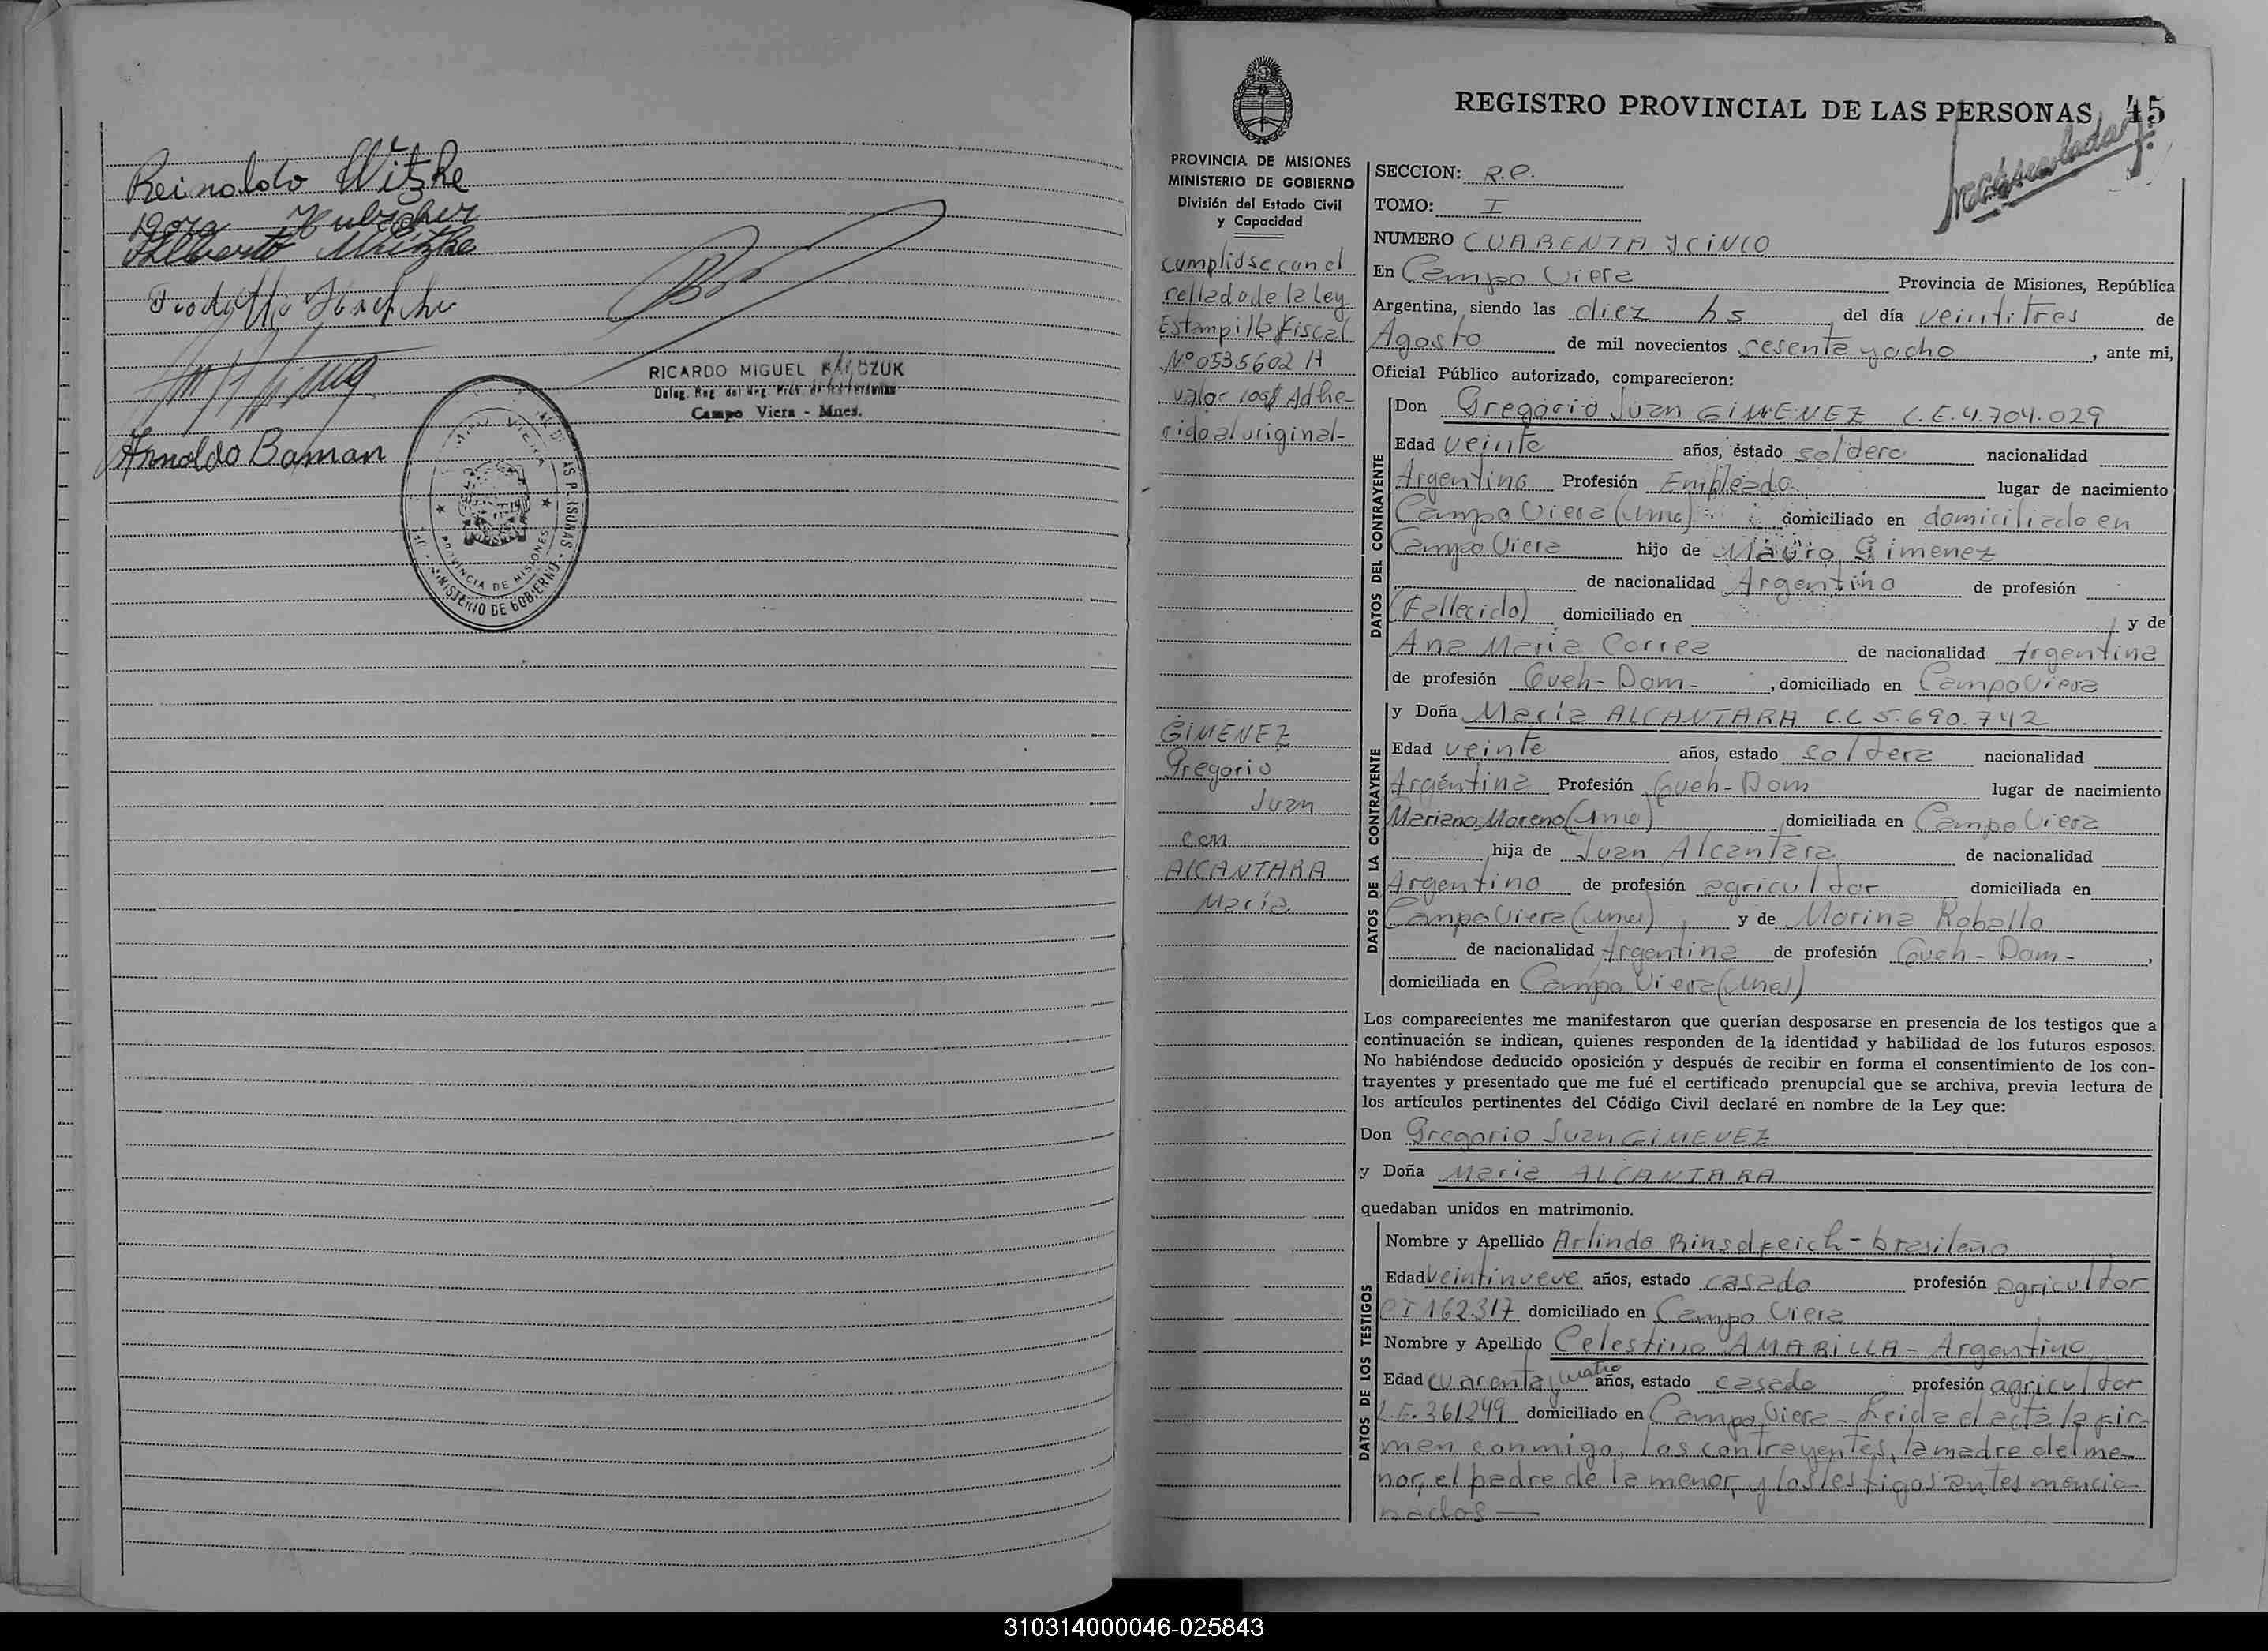 Reinaldo Witzke
Alberto Witzke
RICARDO MIGUEL
Deleg. Reg. del Reg. Prov. de las Personas
Campo Viera - Mnes.
Arnoldo Baman
PROVINCIA DE MISIONES
MINISTERIO DE GOBIERNO
REGISTRO PROVINCIAL DE LAS PERSONAS 45
PROVINCIA DE MISIONES
MINISTERIO DE GOBIERNO
División del Estado Civil
y Capacidad
Cumplidse con el
sellado de la Ley
Estampilla Fiscal
Nº 0535602 A
valor 100$ Adhe-
rido al original-
GIMENEZ
Gregorio
Juan
con
ALCANTARA
María
SECCION: R.P.
TOMO: I
NUMERO CUARENTA Y CINCO
En Campo Viera Provincia de Misiones, República
Argentina, siendo las diez hs del día veintitres de
Agosto de mil novecientos sesenta y ocho, ante mi,
Oficial Público autorizado, comparecieron:
DATOS DEL CONTRAYENTE
Don Gregorio Juan GIMENEZ L.E. 4.704.029
Edad veinte años, estado soltero nacionalidad
Argentino Profesión Empleado lugar de nacimiento
Campo Viera (Mnes) domiciliado en domiciliado en
Campo Viera hijo de Mauro Gimenez
de nacionalidad Argentino de profesión
(Fallecido) domiciliado en y de
Ana Maria Correa de nacionalidad Argentina
de profesión Queh-Dom-, domiciliado en Campo Viera
DATOS DE LA CONTRAYENTE
y Doña María ALCANTARA L.C 5.690.742
Edad veinte años, estado soltera nacionalidad
Argentina Profesión Queh-Dom lugar de nacimiento
Mariano Moreno (Mnes) domiciliada en Campo Viera
hija de Juan Alcantara de nacionalidad
Argentino de profesión agricultor domiciliada en
Campo Viera (Mnes) y de Morina Roballo
de nacionalidad Argentina de profesión Queh-Dom-,
domiciliada en Campo Viera (Mnes)
Los comparecientes me manifestaron que querían desposarse en presencia de los testigos que a
continuación se indican, quienes responden de la identidad y habilidad de los futuros esposos.
No habiéndose deducido oposición y después de recibir en forma el consentimiento de los con-
trayentes y presentado que me fué el certificado prenupcial que se archiva, previa lectura de
los artículos pertinentes del Código Civil declaré en nombre de la Ley que:
Don Gregorio Juan GIMENEZ
y Doña Maria ALCANTARA
quedaban unidos en matrimonio.
DATOS DE LOS TESTIGOS
Nombre y Apellido Arlindo - brasileño
Edad veintinueve años, estado casado profesión agricultor
C I 162.317 domiciliado en Campo Viera
Nombre y Apellido Celestino AMARILLA - Argentino
Edad cuarenta y cuatro años, estado casado profesión agricultor
L.E. 361249 domiciliado en Campo Viera - Leida el acta la fir-
man conmigo, los contrayentes, la madre del me-
nor, el padre de la menor, y los testigos antes mencio-
nados —
310314000046-025843